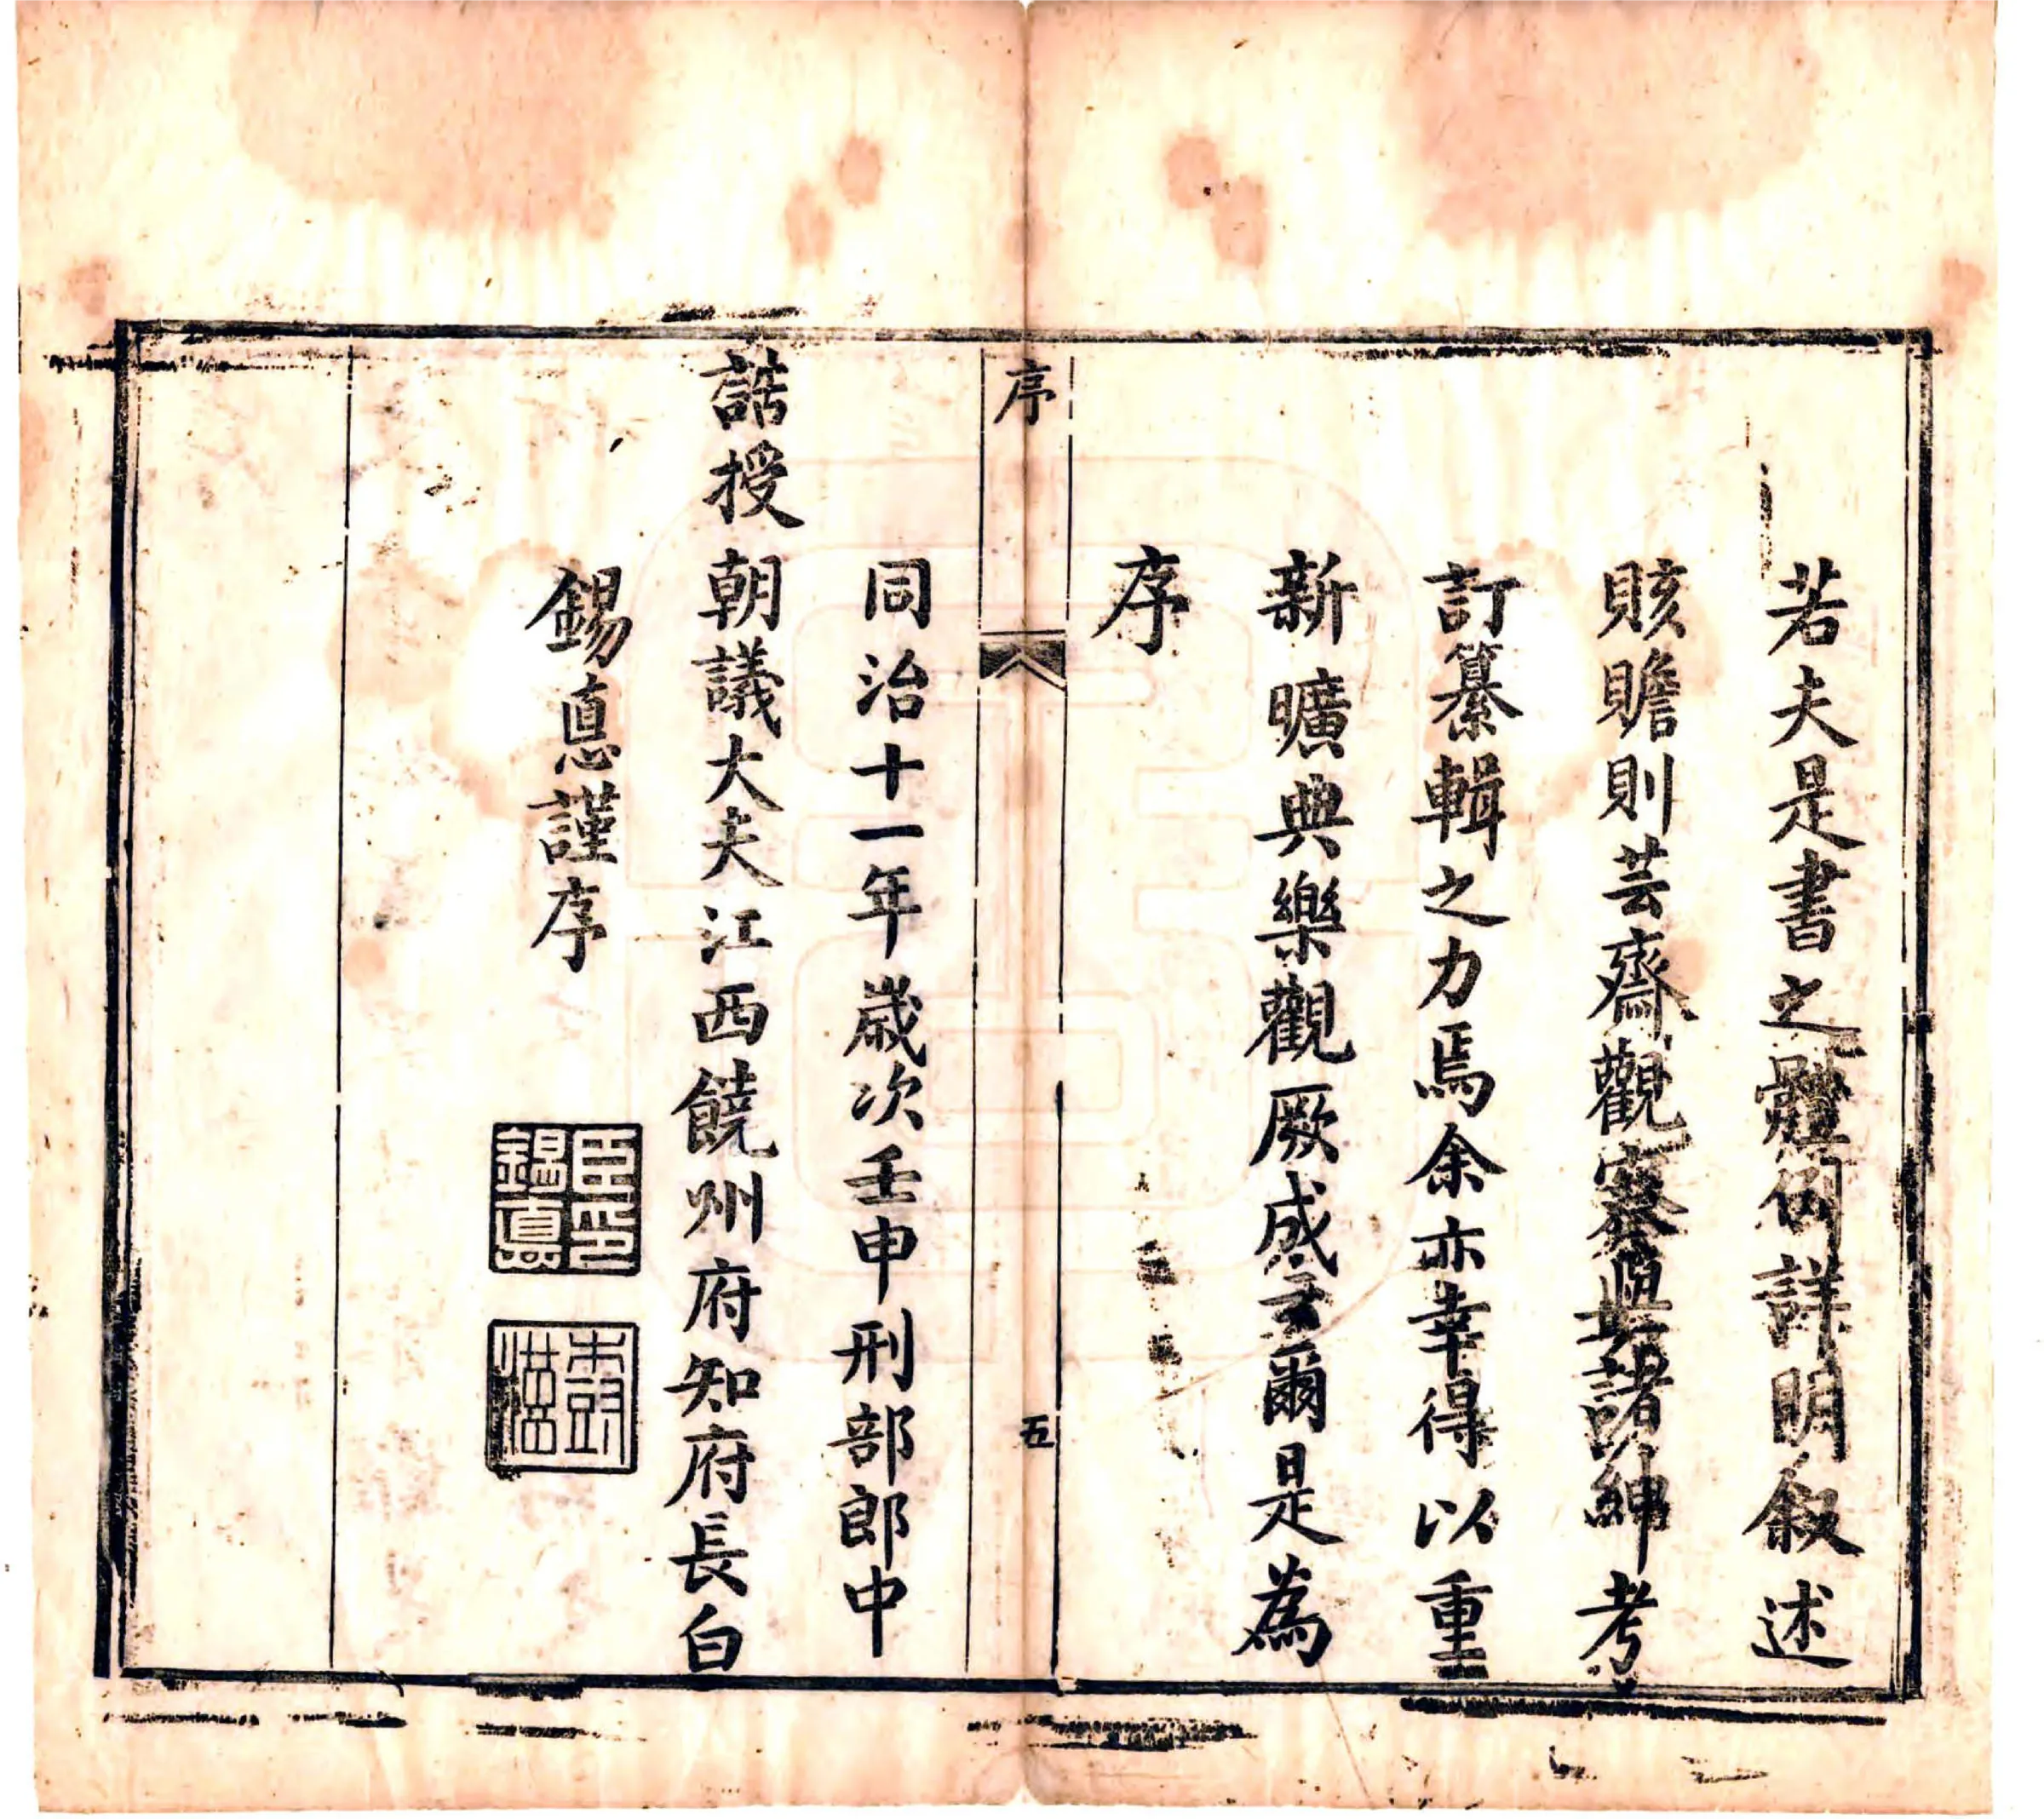 若夫是書之體例詳明叙述
賅贍則芸齋觀察與諸紳考
訂纂輯之力焉余亦幸得以重
新曠典樂觀厥成云爾是為
序
序
五
同治十一年歲次壬申刑部郎中
誥授朝議大夫江西饒州府知府長白
錫悳謹序
臣印錫悳